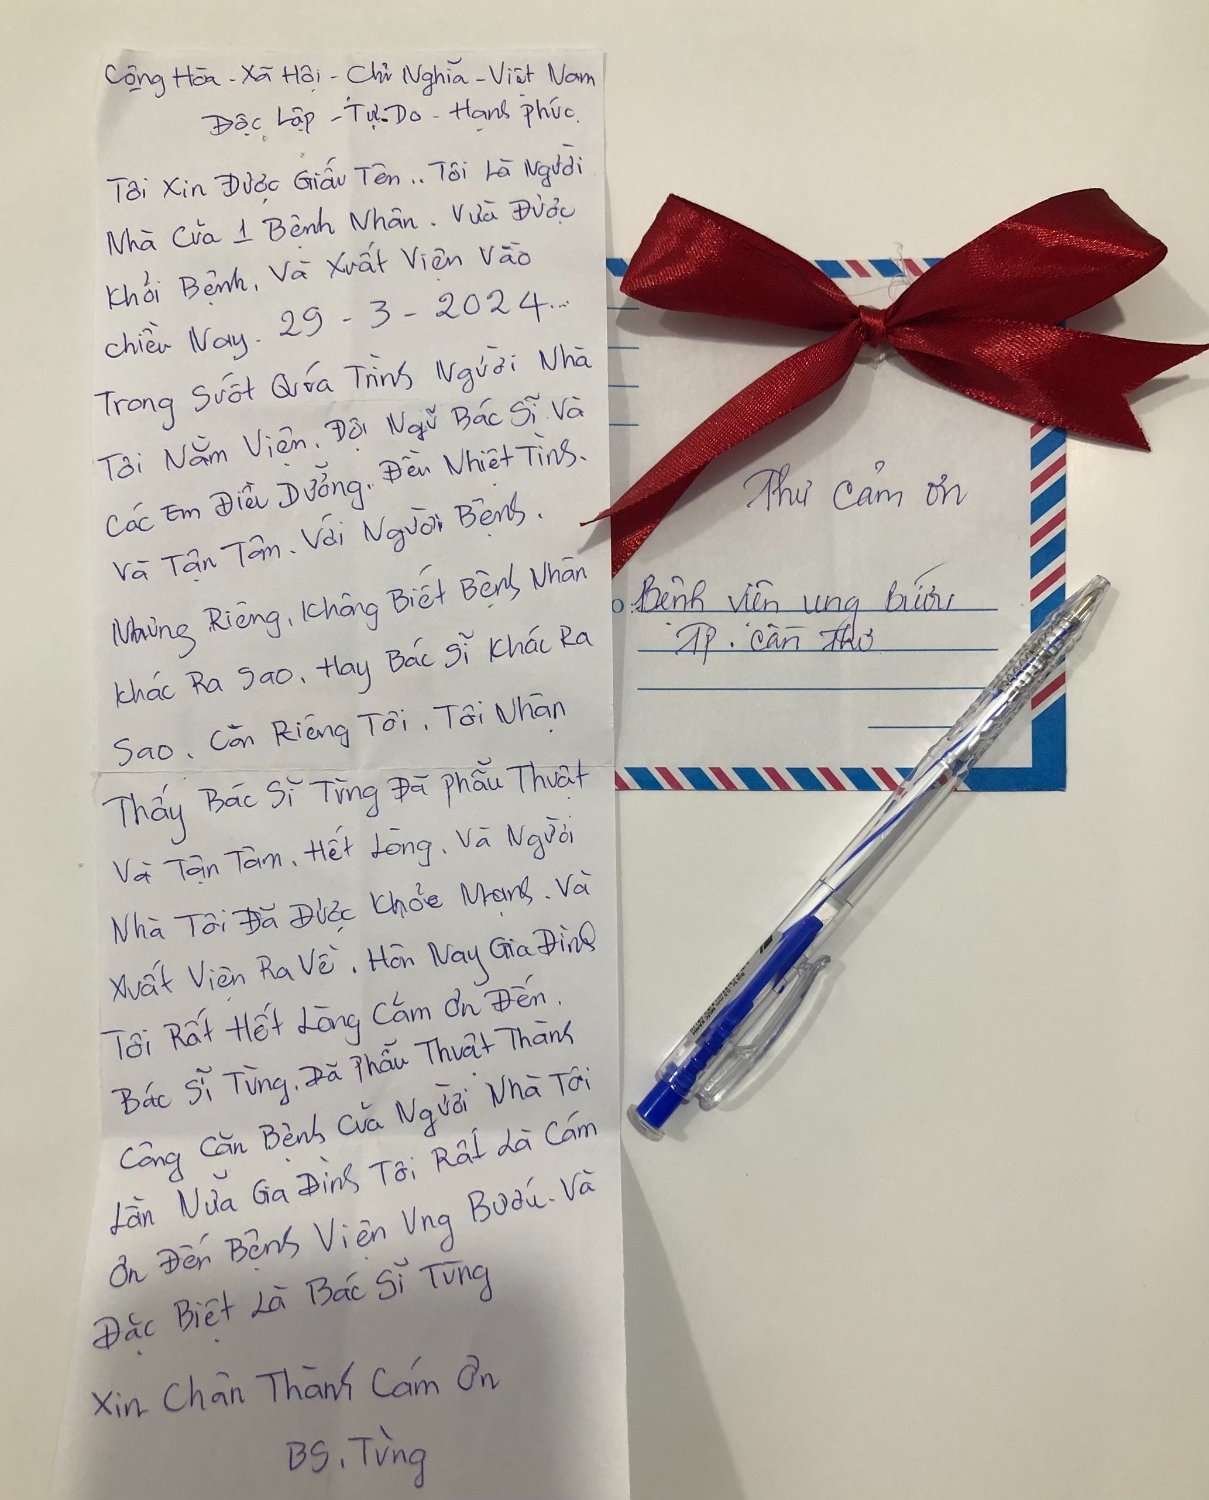 Cộng Hòa - Xã Hội - Chủ Nghĩa - Việt Nam
Độc Lập - Tự Do - Hạnh phúc.
Tôi Xin Được Giấu Tên .. Tôi Là Người
Nhà Của 1 Bệnh Nhân . Vừa Được
Khỏi Bệnh. Và Xuất Viện Vào
chiều Nay. 29 - 3 - 2024...
Trong Suốt Quá Trình Người Nhà
Tôi Nằm Viện. Đội Ngũ Bác Sĩ Và
Các Em Điều Dưỡng. Đều Nhiệt Tình.
Và Tận Tâm. Với Người Bệnh.
Nhưng Riêng. Không Biết Bệnh Nhân
Khác Ra Sao. Hay Bác Sĩ Khác Ra
Sao. Còn Riêng Tôi . Tôi Nhận
Thấy Bác Sĩ Tùng Đã Phẫu Thuật
Và Tận Tâm. Hết Lòng. Và Người
Nhà Tôi Đã Được Khỏe Mạnh. Và
Xuất Viện Ra Về . Hôn Nay Gia Đình
Tôi Rất Hết Lòng Cắm Ơn Đến.
Bác Sĩ Tùng. Đã Phẫu Thuật Thành
Công Căn Bệnh Của Người Nhà Tôi
Lần Nữa Gia Đình Tôi Rất Là Cám
Ơn Đến Bệnh Viện Ung Bướu. Và
Đặc Biệt Là Bác Sĩ Tùng
Xin Chân Thành Cám Ơn
BS. Tùng
Thư cảm ơn
Bệnh viện ung bướu
TP. Cần Thơ